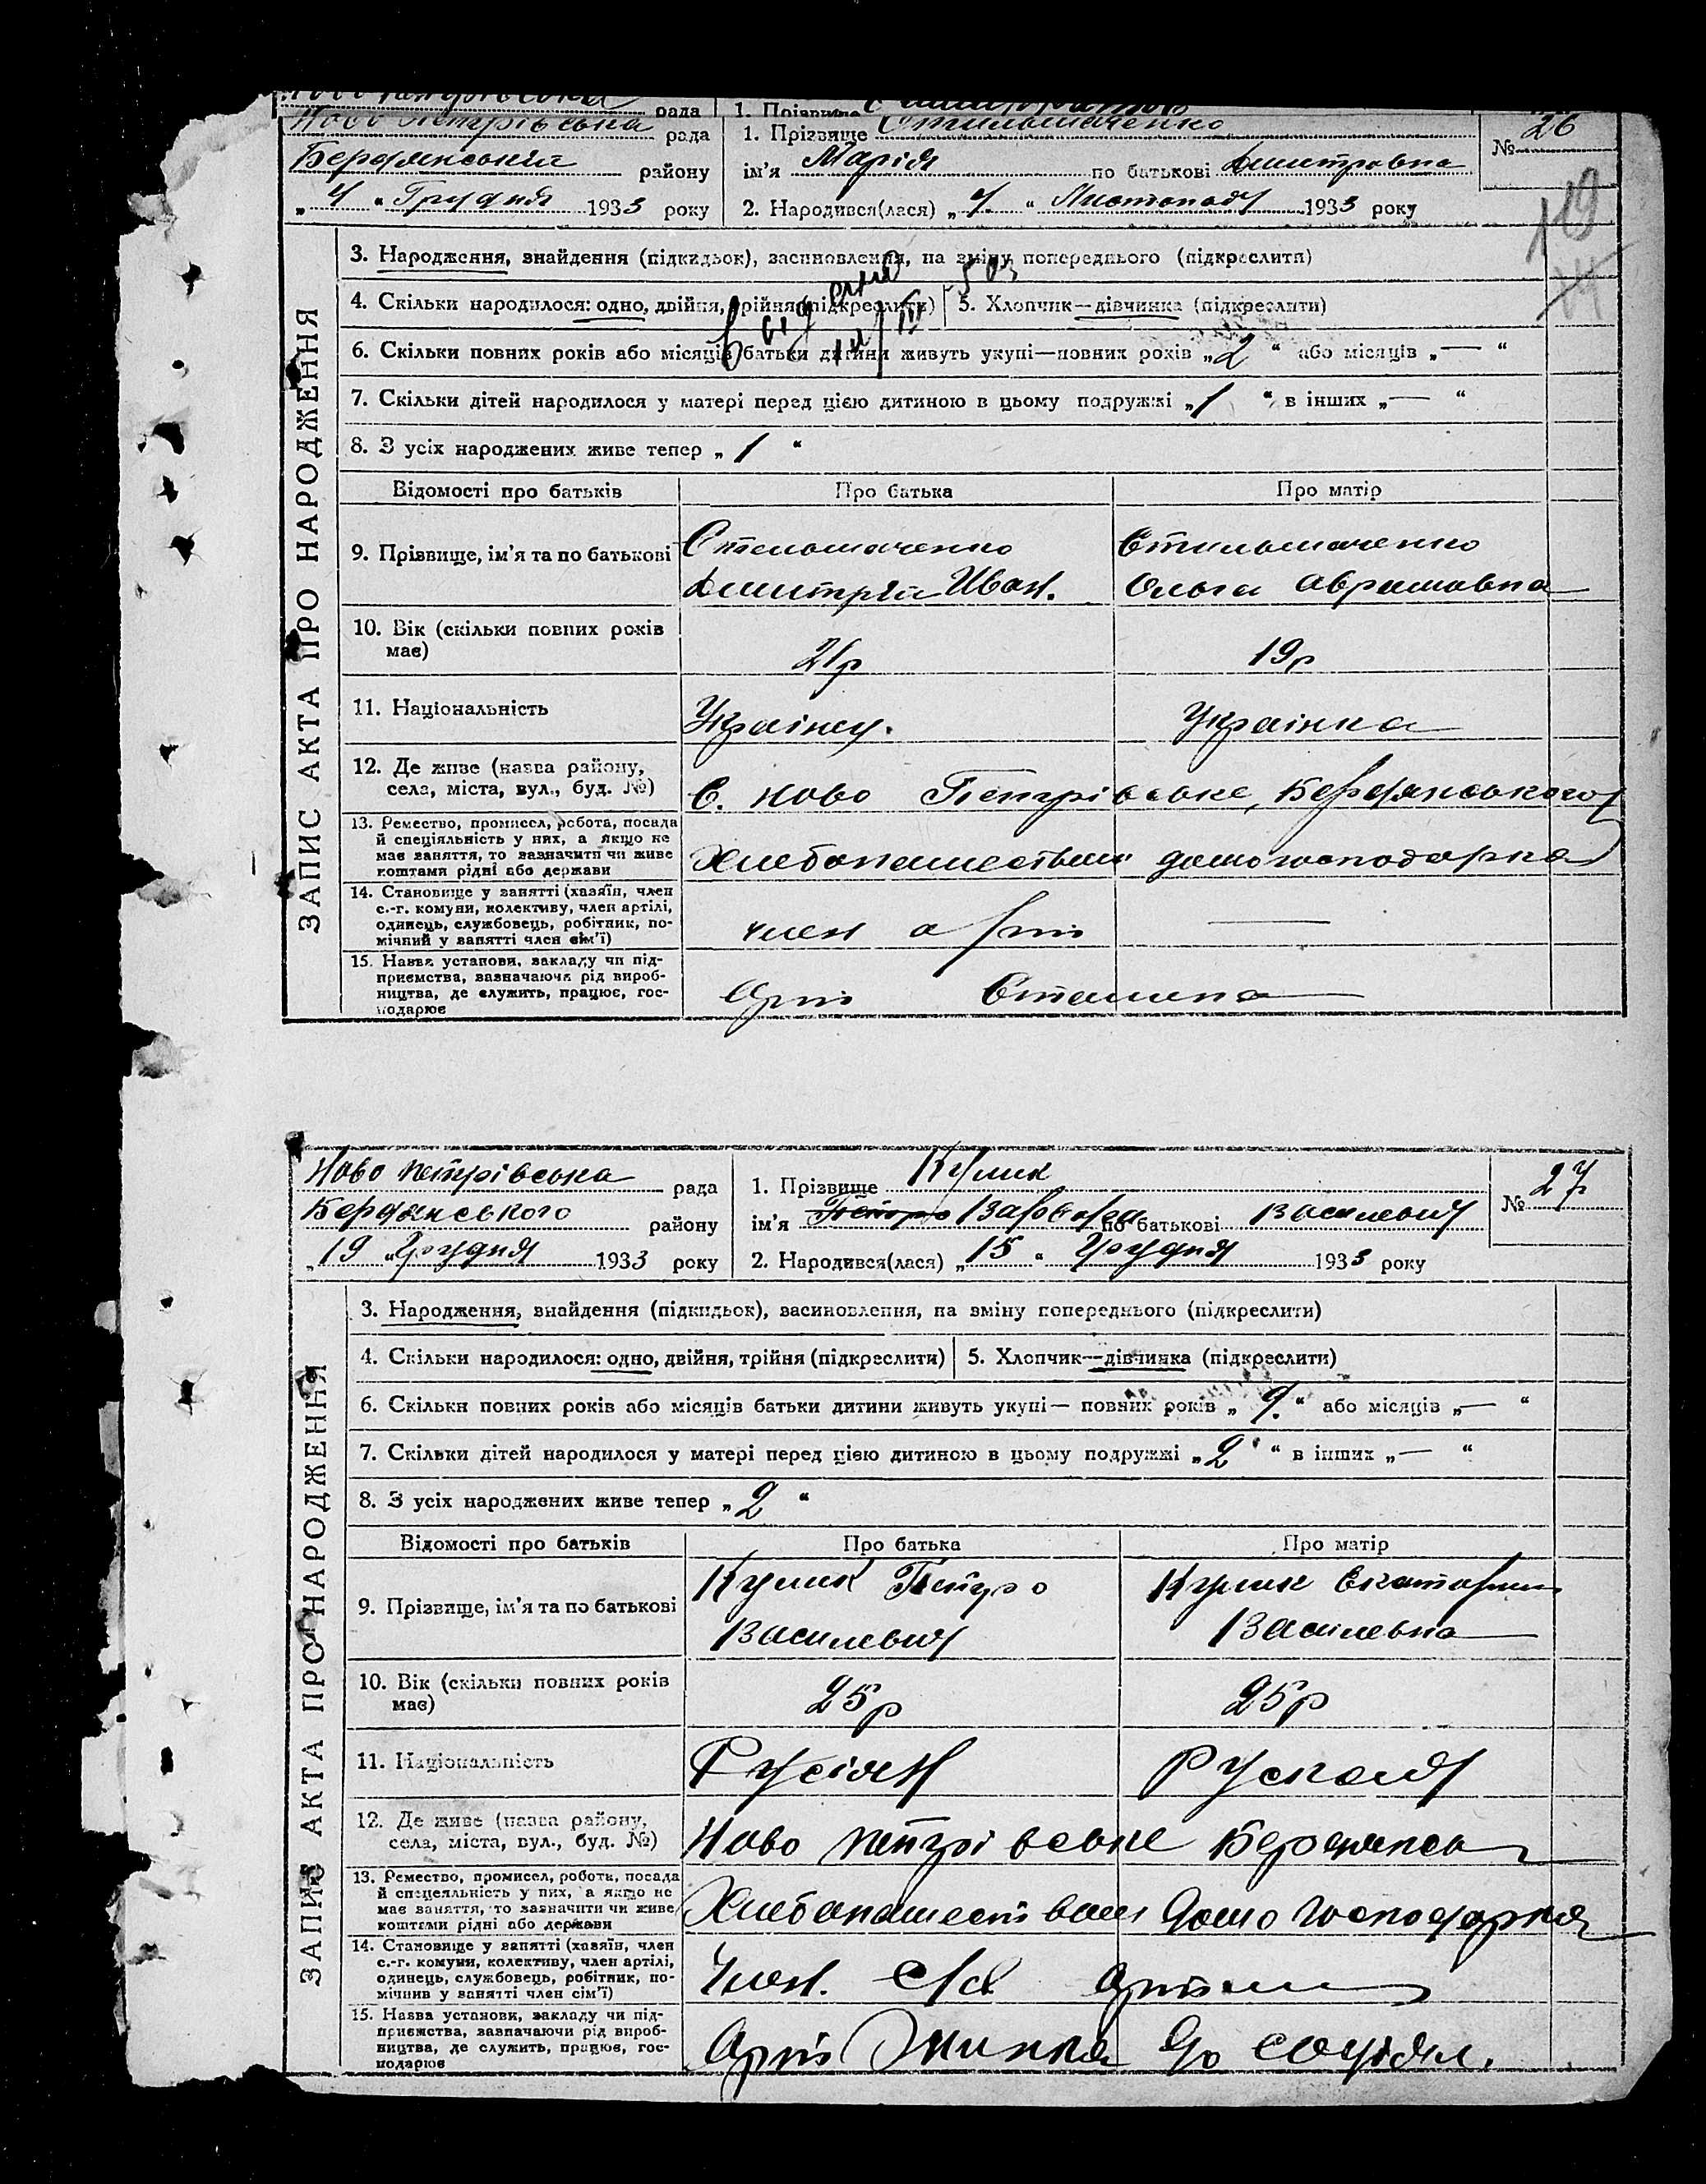 Ново Петрівська рада
Бердянській району
„4 “ Грудня 1933 року
1. Прізвище Стильмаченко
ім'я Марія по батькові Дмитровна
2. Народився(лася) „7. “ Листопаду 1933 року
№ 26
119
3. Народження, знайдення (підкидьок), засиновлення, на зміну попереднього (підкреслити)
4. Скільки народилося: одно, двійня, трійня (підкреслити) 5. Хлопчик—дівчинка (підкреслити)
6. Скільки повних років або місяців батьки дитини живуть укупі—повних років „2 “ або місяців „— “
7. Скільки дітей народилося у матері перед цією дитиною в цьому подружжі „1 “ в інших „— “
8. З усіх народжених живе тепер „1 “
ЗАПИС АКТА ПРО НАРОДЖЕННЯ
Відомості про батьків Про батька Про матір
9. Прізвище, ім'я та по батькові
Стельмаченко
Дмитрій Иван.
Стильмаченко
Ольга Аврамовна
10. Вік (скільки повних років
має)
21р 19р
11. Національність Українц. Українка
12. Де живе (назва району,
села, міста, вул., буд. №)
С. Ново Петрівське, Бердянського
13. Ремество, промисел, робота, посада
й спеціяльність у них, а якщо не
має заняття, то зазначити чи живе
коштами рідні або держави
Хлебопашеством домогосподарка
14. Становище у занятті (хазяїн, член
с.-г. комуни, колективу, член артілі,
одинець, службовець, робітник, по-
мічний у занятті член сім'ї)
член арт —
15. Назва установи, закладу чи під-
приємства, зазначаючи рід вироб-
ництва, де служить, працює, гос-
подарює
Арт Сталина
Ново Петрівська рада
Бердянського району
„19 “ Грудня 1933 року
1. Прізвище Кулик
ім'я Петро Варвара по батькові Василевич
2. Народився(лася) „15 “ Грудня 1933 року
№ 27
3. Народження, знайдення (підкидьок), засиновлення, на зміну попереднього (підкреслити)
4. Скільки народилося: одно, двійня, трійня (підкреслити) 5. Хлопчик—дівчинка (підкреслити)
6. Скільки повних років або місяців батьки дитини живуть укупі— повних років „9. “ або місяців „— “
7. Скільки дітей народилося у матері перед цією дитиною в цьому подружжі „2 “ в інших „— “
8. З усіх народжених живе тепер „2 “
ЗАПИС АКТА ПРО НАРОДЖЕННЯ
Відомості про батьків Про батька Про матір
9. Прізвище, ім'я та по батькові
Кулик Петро
Василевич
Кулик Екатерин
Василевна
10. Вік (скільки повних років
має)
25р 25р
11. Національність Русіян Руская
12. Де живе (назва району,
села, міста, вул., буд. №)
Ново Петрівське Бердянськ
13. Ремество, промисел, робота, посада
й спецеяльність у них, а якщо не
має заняття, то зазначити чи живе
коштами рідні або держави
Хлебопашеством Домо господарка
14. Становище у занятті (хазяїн, член
с.-г. комуни, колективу, член артілі,
одинець, службовець, робітник, по-
мічнив у занятті член сім'ї)
Член. с/г Артели
15. Назва установи, закладу чи під-
приємства, зазначаючи рід вироб-
ництва, де служить, працює, гос-
подарює
Арт до соціял.